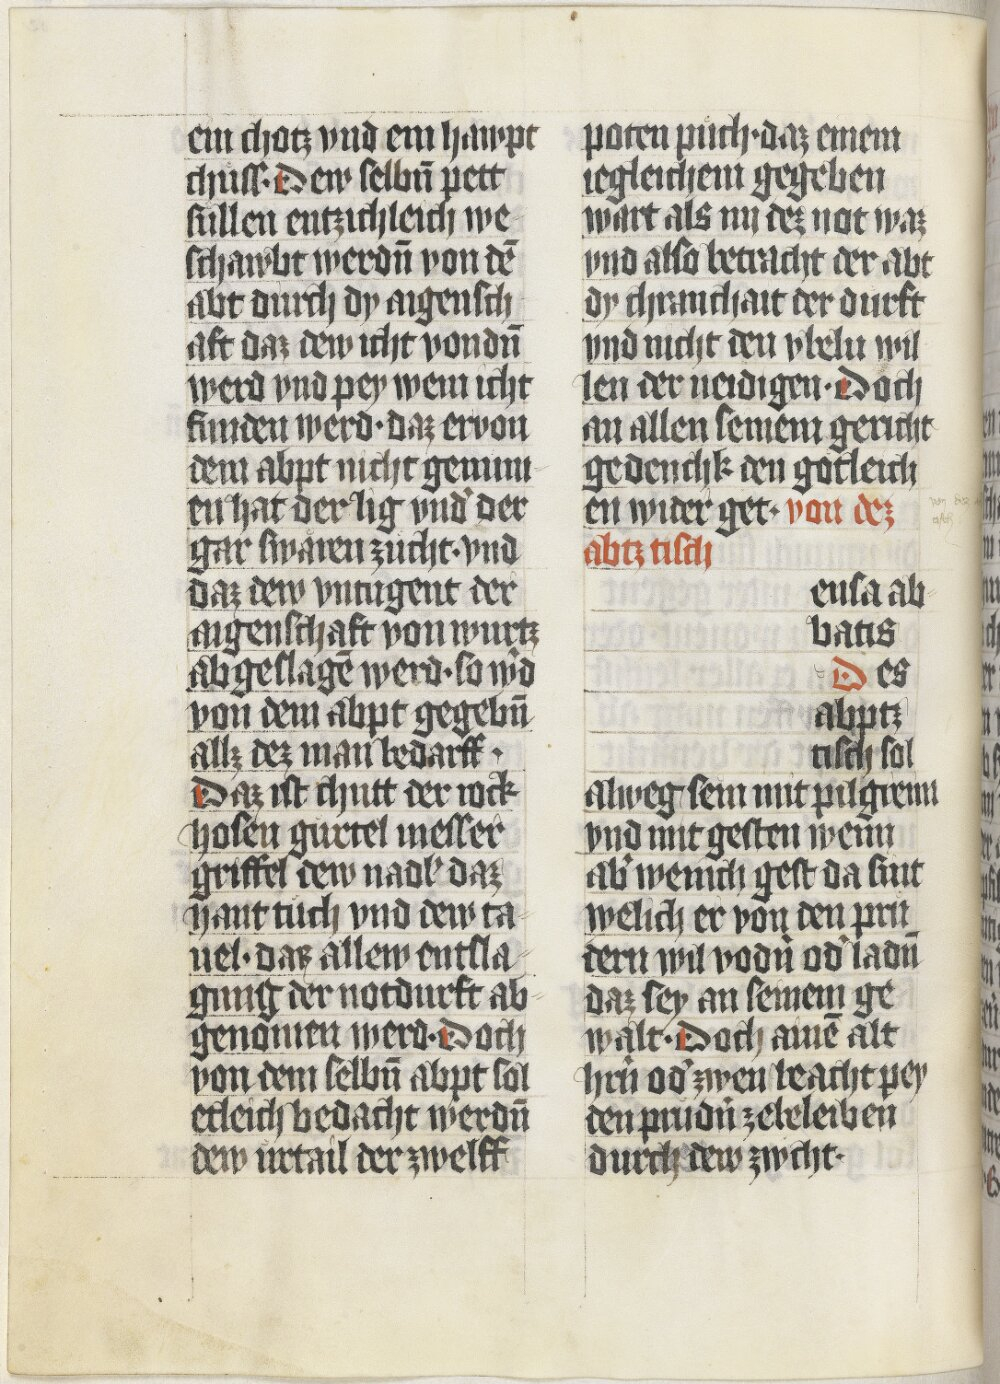 ein chotz vnd ein hawpt
chuss · Dew selbn̄ pett
sullen entzichleich we
schawbt werdn̄ von dē
abt durch dy aigensch
aft daz dew icht vondn̄
werd vnd pey wem icht
funden werd · daz er von
dem abpt nicht genum
en hat der lig vnd' der
gar swaren zucht · vnd
daz dew vntugent der
aigenschaft von wurtz
ab geslagē werd · so wīd
von dem abpt gegebn̄
allz dez man bedarff ·
Daz ist chutt der rock
hosen gurtel messer
griffel dew nadl' daz
hant tuch vnd dew ta
uel · daz allew entsla
gung der notdurft ab
genomen werd · Doch
von dem selbn̄ abpt sol
etleich bedacht werdn̄
dew urtail der zwelff
poten puch · daz einem
iegleichem gegeben
wart als im dez not waz
vnd also betracht der abt
dy chranchait der durft
vnd nicht den vbeln wil
len der neidigen · Doch
an allen seinem gericht
gedenchk den gotleich
en wider get · von dez
abtz tisch
ensa ab
batis
Des
abptz
tisch sol
alweg sein mit pilgreim
vnd mit gesten wenn
ab' wenich gest da sint
welich er von den prü
dern wil vodn̄ od' ladn̄
daz sey an seinem ge
walt · Doch ainē alt
hrn̄ od' zwen beacht pey
den prudn̄ ze beleiben
durch dew zwcht ·